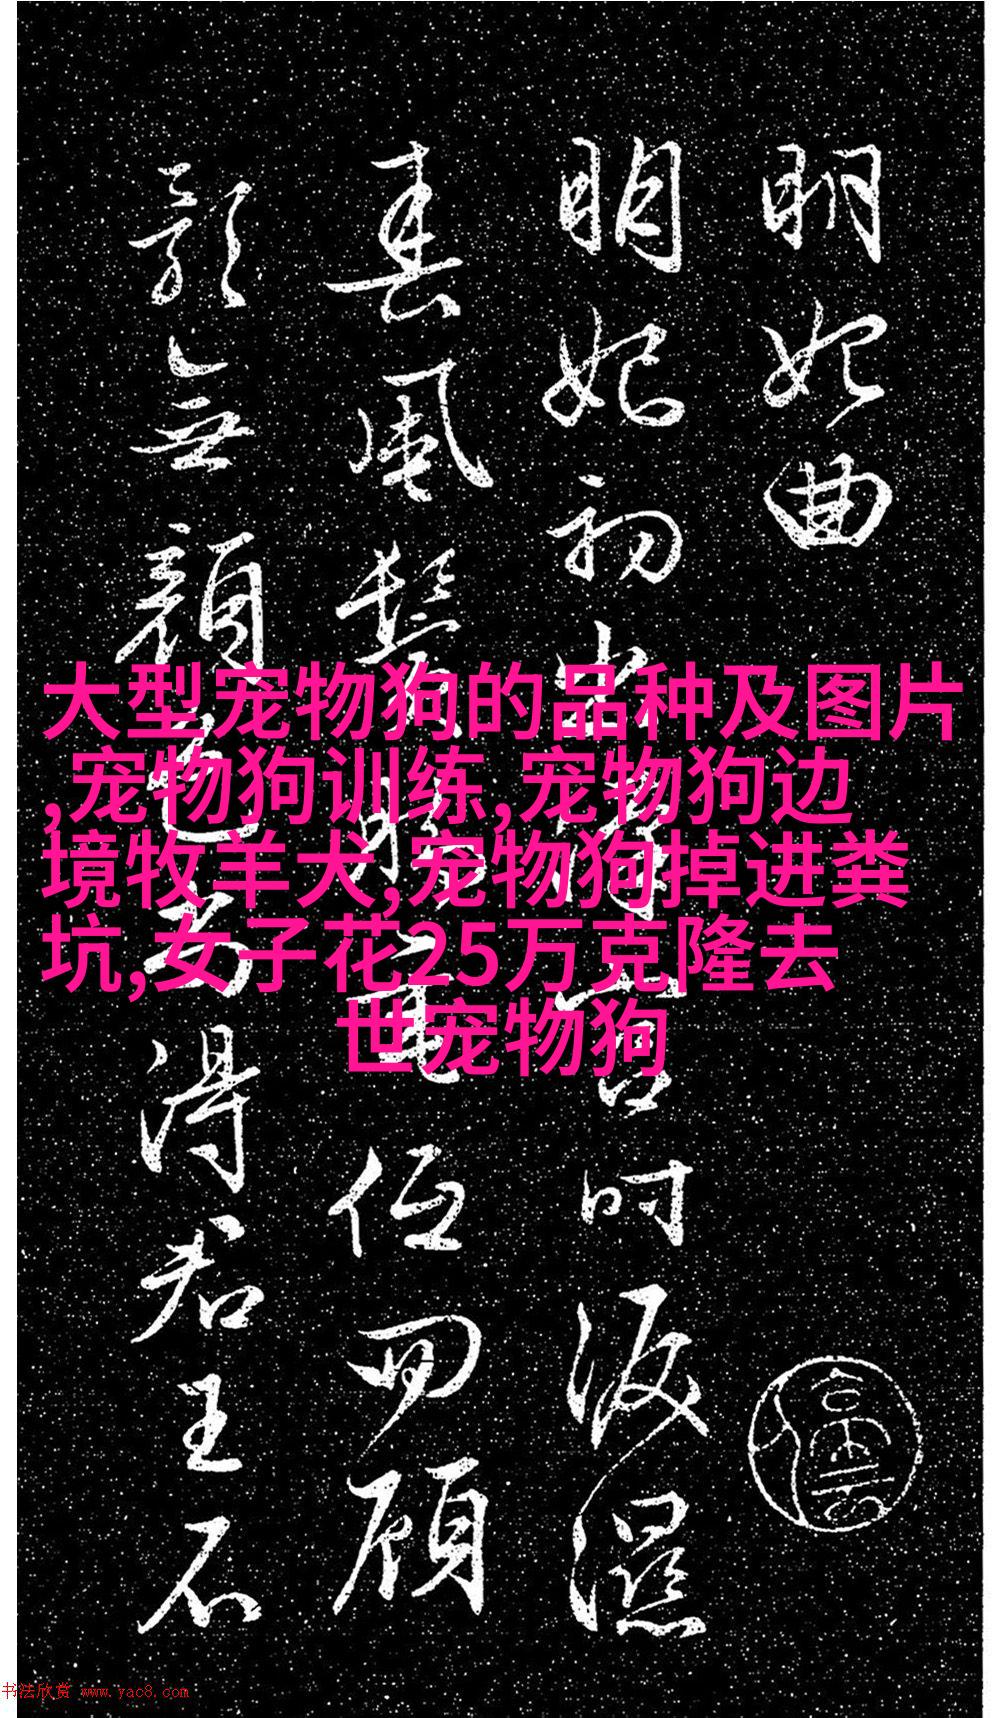 明妃曲
明妃初出漢宮時淚濕
春風鬢腳垂低回顧
影無顏色尚得君王不
大型宠物狗的品种及图片
,宠物狗训练,宠物狗边
境牧羊犬,宠物狗掉进粪
坑,女子花25万克隆去
世宠物狗
书法欣赏 www.yac8.com